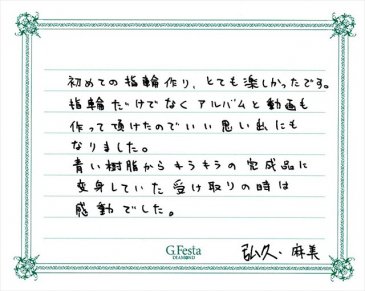 初めての指輪作り、とても楽しかったです。
指輪だけでなくアルバムと動画も
作って頂けたのでいい思い出にも
なりました。
青い樹脂からキラキラの完成品に
変身していた受け取りの時は
感動でした。
G.Festa
DIAMOND
弘久・麻美